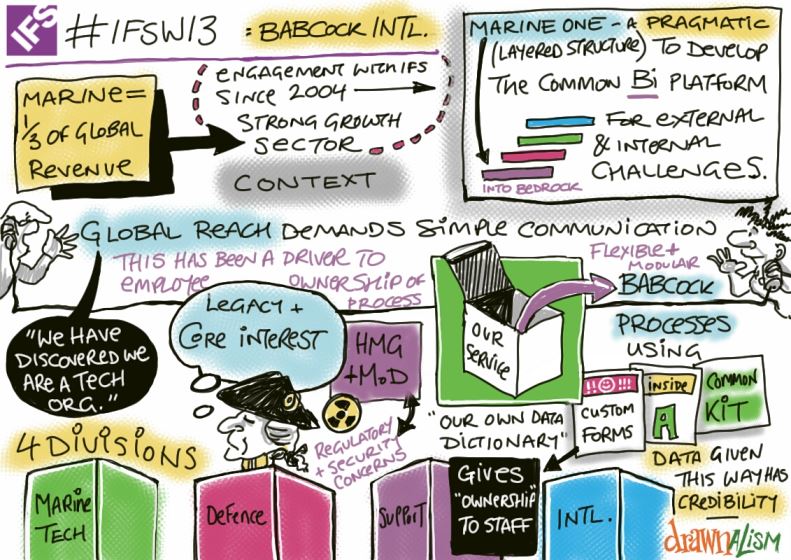 IFS #IFSW13 = BABCOCK INTL.
MARINE =
1/3 OF GLOBAL
REVENUE
ENGAGEMENT WITH IFS
SINCE 2004
STRONG GROWTH
SECTOR
CONTEXT
MARINE ONE - A PRAGMATIC
(LAYERED STRUCTURE) TO DEVELOP
THE COMMON Bi PLATFORM
FOR EXTERNAL
& INTERNAL
CHALLENGES.
INTO BEDROCK
GLOBAL REACH DEMANDS SIMPLE COMMUNICATION
THIS HAS BEEN A DRIVER TO
EMPLOYEE OWNERSHIP OF
PROCESS
"WE HAVE
DISCOVERED WE
ARE A TECH
ORG."
LEGACY +
CORE INTEREST
HMG
+ MoD
REGULATORY
+ SECURITY
CONCERNS
OUR
SERVICE
FLEXIBLE +
MODULAR
BABCOCK
PROCESSES
USING
!! !!!
CUSTOM
FORMS
INSIDE
A
COMMON
KIT
"OUR OWN DATA
DICTIONARY"
GIVES
"OWNERSHIP"
TO STAFF
DATA GIVEN
THIS WAY HAS
CREDIBILITY
4 DIVISIONS
MARINE
TECH
DEFENCE
SUPPORT
INTL.
drawnALISM